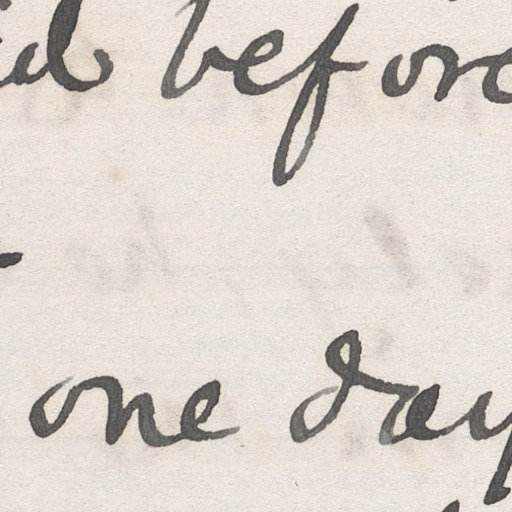 before
one day